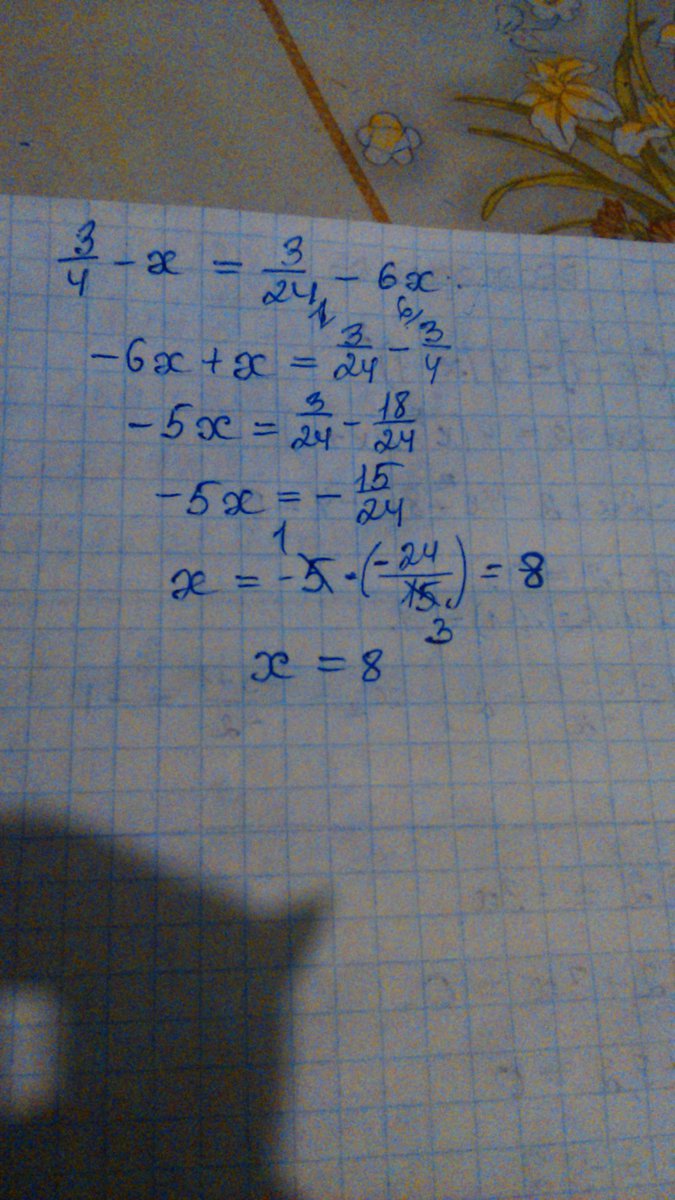 3/4 - x = 3/24 - 6x
1 6
-6x + x = 3/24 - 3/4
-5x = 3/24 - 18/24
-5x = - 15/24
1
x = -5 · (-24/15) = 8
3
x = 8